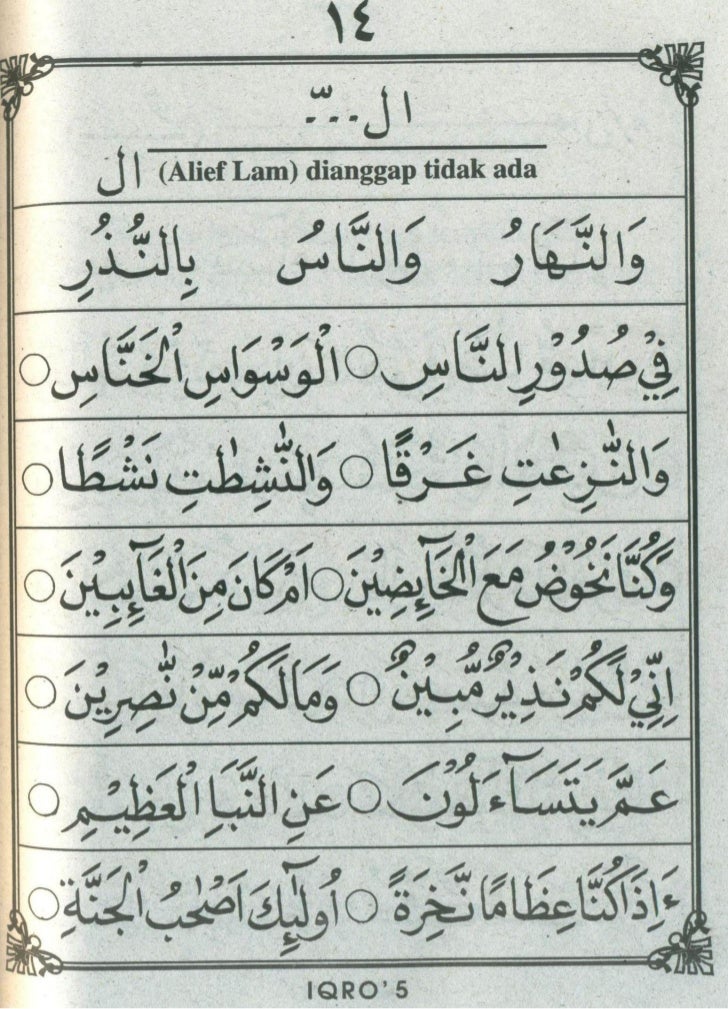 ١٤
ال...ّ
ال (Alief Lam) dianggap tidak ada
وَالنَّهَارُ وَالنَّاسُ بِالنُّذُرِ
فِيْ صُدُوْرِ النَّاسِ ○ الْوَسْوَاسِ الْخَنَّاسِ ○
وَالنّٰزِعٰتِ غَرْقًا ○ وَالنّٰشِطٰتِ نَشْطًا ○
وَكُنَّا نَخُوْضُ مَعَ الْخَآئِضِيْنَ ○ اَمْ كَانَ مِنَ الْغَآئِبِيْنَ ○
اِنِّيْ لَكُمْ نَذِيْرٌ مُّبِيْنٌ ○ وَمَا لَكُمْ مِّنْ نّٰصِرِيْنَ ○
عَمَّ يَتَسَآءَلُوْنَ ○ عَنِ النَّبَاِ الْعَظِيْمِ ○
ءَاِذَا كُنَّا عِظَامًا نَّخِرَةً ○ اُولٰٓئِكَ اَصْحٰبُ الْجَنَّةِ ○
IQRO'5